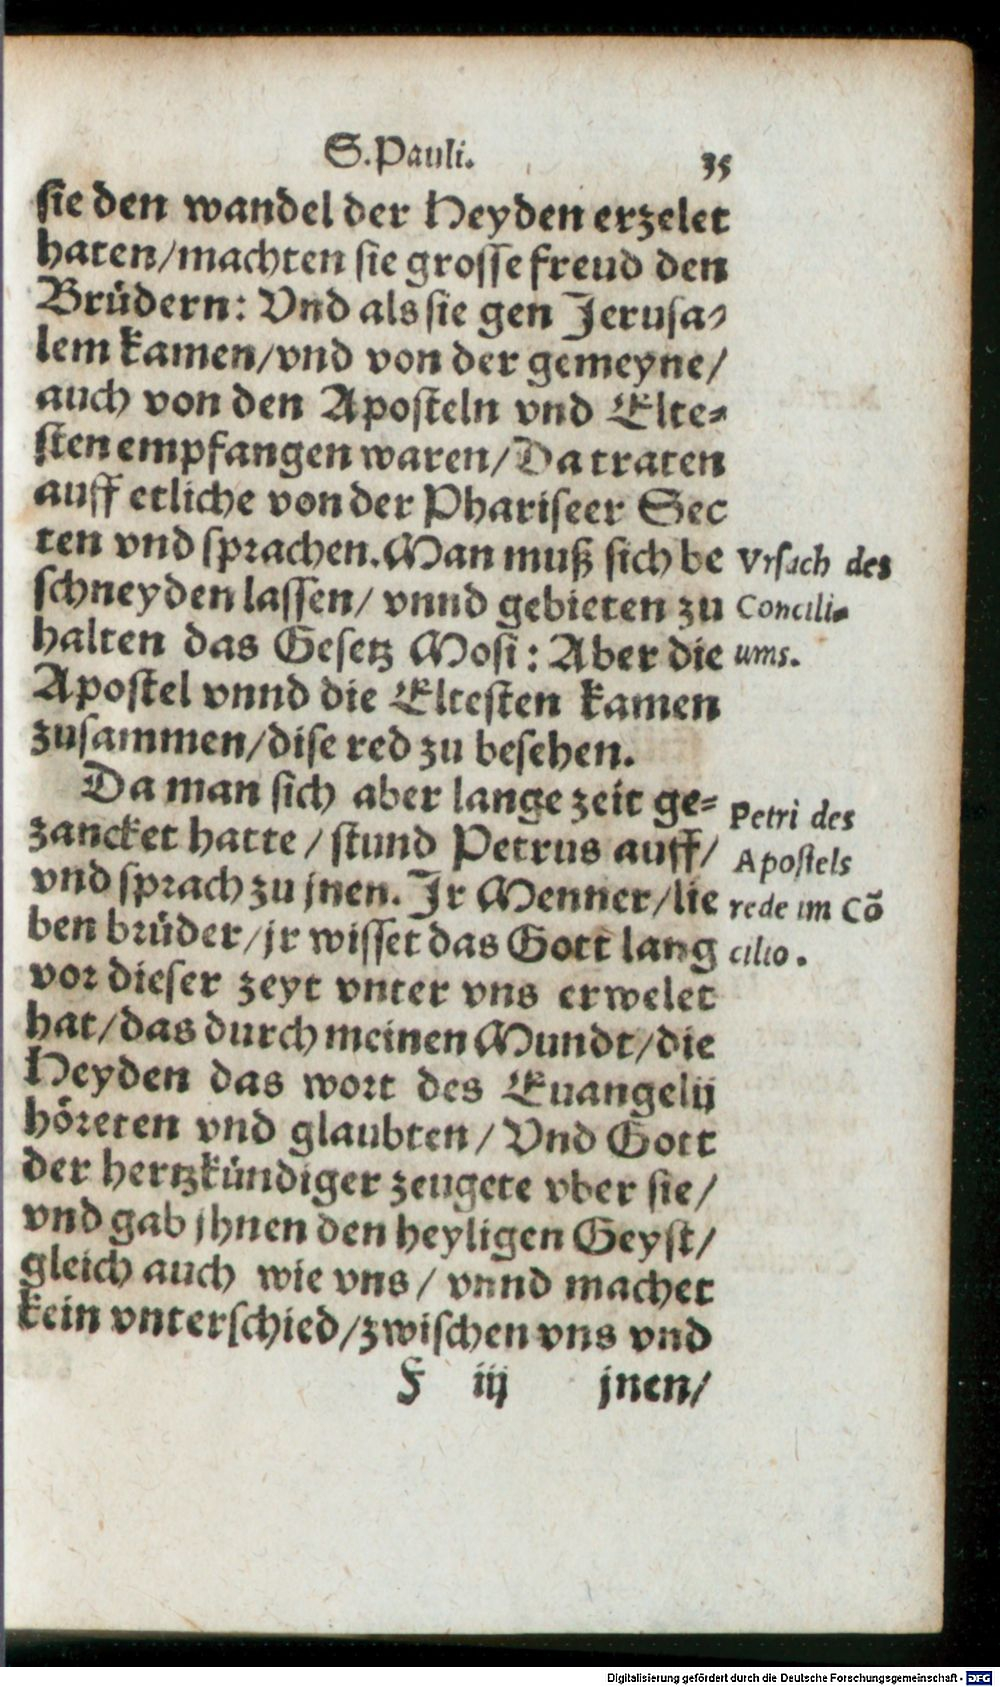 S. Pauli. 35
sie den wandel der Heyden erzelet
haten/machten sie grosse freud den
Brüdern: Vnd als sie gen Jerusa-
lem kamen/vnd von der gemeyne/
auch von den Aposteln vnd Elte-
sten empfangen waren/Da traten
auff etliche von der Phariseer Sec
ten vnd sprachen. Man muß sich be
schneyden lassen/ vnnd gebieten zu
halten das Gesetz Mosi: Aber die
Apostel vnnd die Eltesten kamen
zusammen/dise red zu besehen.
Vrsach des
Concili-
ums.
Da man sich aber lange zeit ge-
zancket hatte/ stund Petrus auff/
vnd sprach zu jnen. Jr Menner/lie
ben brüder/jr wisset das Gott lang
vor dieser zeyt vnter vns erwelet
hat/das durch meinen Mundt/die
Heyden das wort des Euangelij
höreten vnd glaubten/ Vnd Gott
der hertzkündiger zeugete vber sie/
vnd gab jhnen den heyligen Geyst/
gleich auch wie vns/ vnnd machet
kein vnterschied/zwischen vns vnd
Petri des
Apostels
rede im Cō
cilio.
F iij jnen/
Digitalisierung gefördert durch die Deutsche Forschungsgemeinschaft - DFG